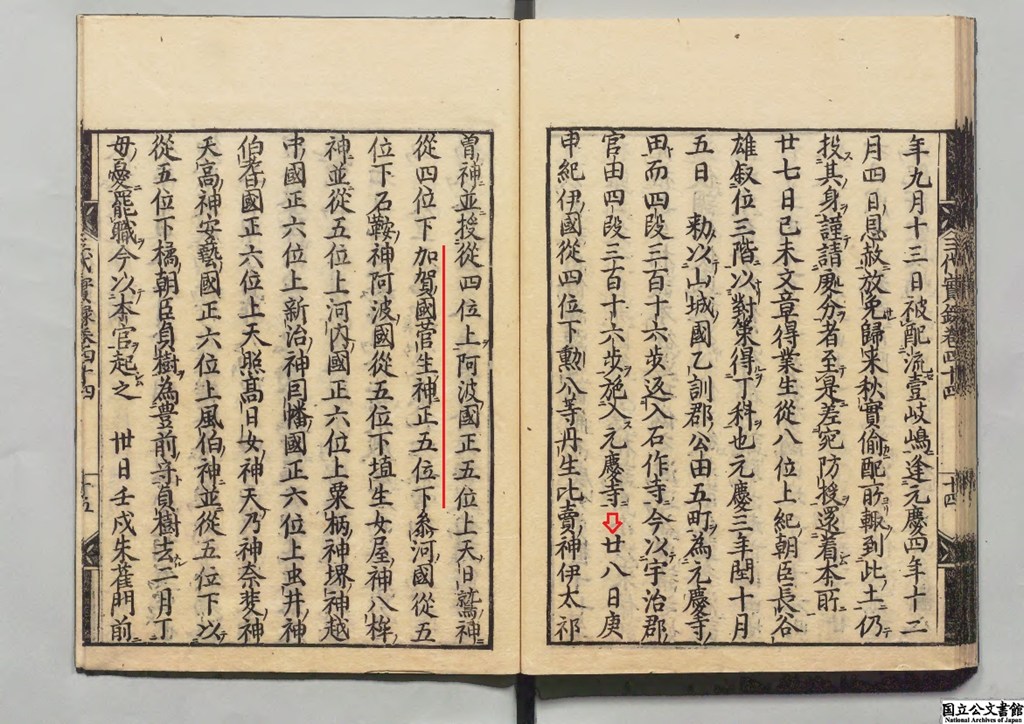 年九月十三日被配流壹岐嶋逢元慶四年十二
月四日恩赦放免歸来秋實偷配所輙到此土仍
投其身謹請處分者至是差宛防援還着本所
廿七日己未文章得業生從八位上紀朝臣長谷
雄叙位三階以對策得丁科也元慶三年閏十月
五日　勅以山城國乙訓郡公田五町為元慶寺
田而四段三百十六步返入石作寺今以宇治郡
官田四段三百十六步施入元慶寺　廿八日庚
申紀伊國從四位下勲八等丹生比賣神伊太祁
曽神並授從四位上阿波國正五位上天日鷲神
從四位下加賀國菅生神正五位下叅河國從五
位下石鞍神阿波國從五位下埴生女屋神八桙
神並從五位上河内國正六位上粟柄神堺神越
中國正六位上新治神因幡國正六位上虫井神
伯耆國正六位上天照髙日女神天乃神奈斐神
天高神安藝國正六位上風伯神並從五位下以
從五位下橘朝臣貞樹為豊前守貞樹去二月丁
母憂罷職今以本官起之　卅日壬戌朱雀門前
三代實録卷四十四
十四
三代實録卷四十四
十五
国立公文書館
National Archives of Japan